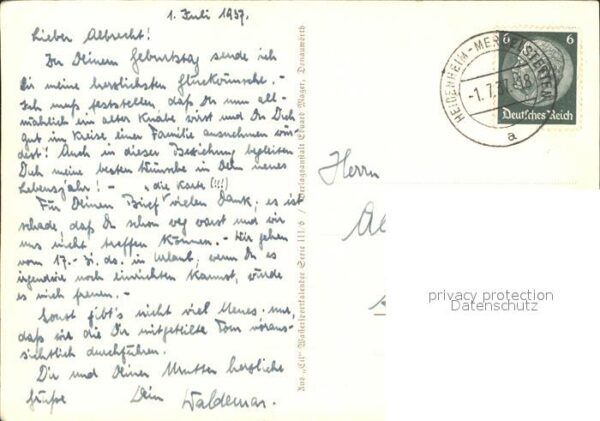 1. Juli 1937.
Lieber Albrecht!
Zu Deinem Geburtstag sende ich
Dir meine herzlichsten Glückwünsche. -
Ich muß feststellen, daß Du nun all-
mählich ein alter Knabe wirst und Du Dich
gut im Kreise einer Familie ausnehmen wür-
dest! Auch in dieser Beziehung begleiten
Dich meine besten Wünsche in Dein neues
Lebensjahr! - "die Karte (!!!)
Für Deinen Brief vielen Dank; es ist
schade, daß Du schon weg warst und wir
uns nicht treffen können. - Wir gehen
vom 17. - 31. ds. in Urlaub, wenn Du es
irgendwie noch einrichten kannst, würde
es mich freuen. -
Sonst gibt's nicht viel Neues, nur,
daß wir die Dir mitgeteilte Tour voraus-
sichtlich durchführen.
Dir und Deiner Mutter herzliche
Grüße Dein Waldemar.
Aus „Eil“ Verlagsanstalt Eduard Mager, Donauwörth
Herrn
Al
HEIDENHEIM-MERGELSTETTEN
-1.7.37
a
6 6
Deutsches Reich
privacy protection
Datenschutz